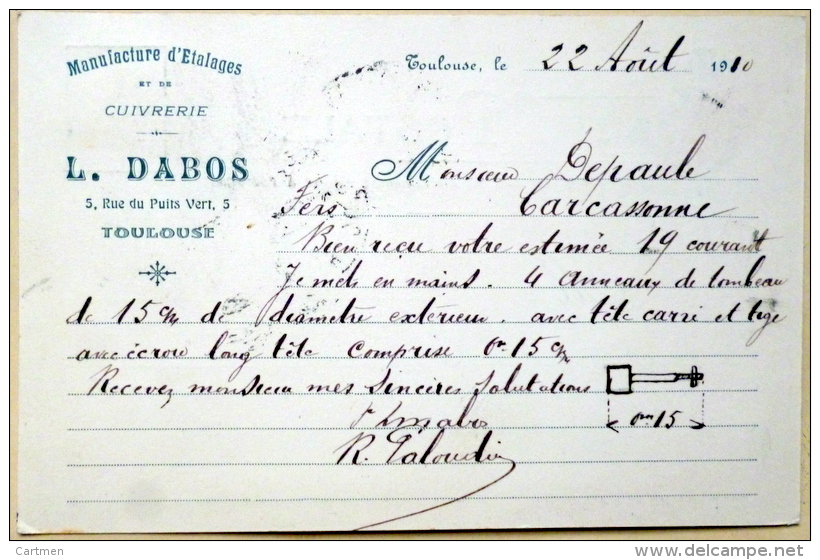 Manufacture d'Etalages
ET DE
CUIVRERIE
L. DABOS
5, Rue du Puits Vert, 5
TOULOUSE
Toulouse, le 22 Août 1910
Monsieur Depaule
Fers Carcassonne
Bien reçu votre estimée 19 courant
Je mets en mains. 4 anneaux de tombeau
de 15 c/m de diamètre extérieur. avec tête carré et tige
avec écrou long tête comprise 0m15 c/m
Recevez monsieur mes sincères salutations
0m15
R.
Cartmen
www.delcampe.net